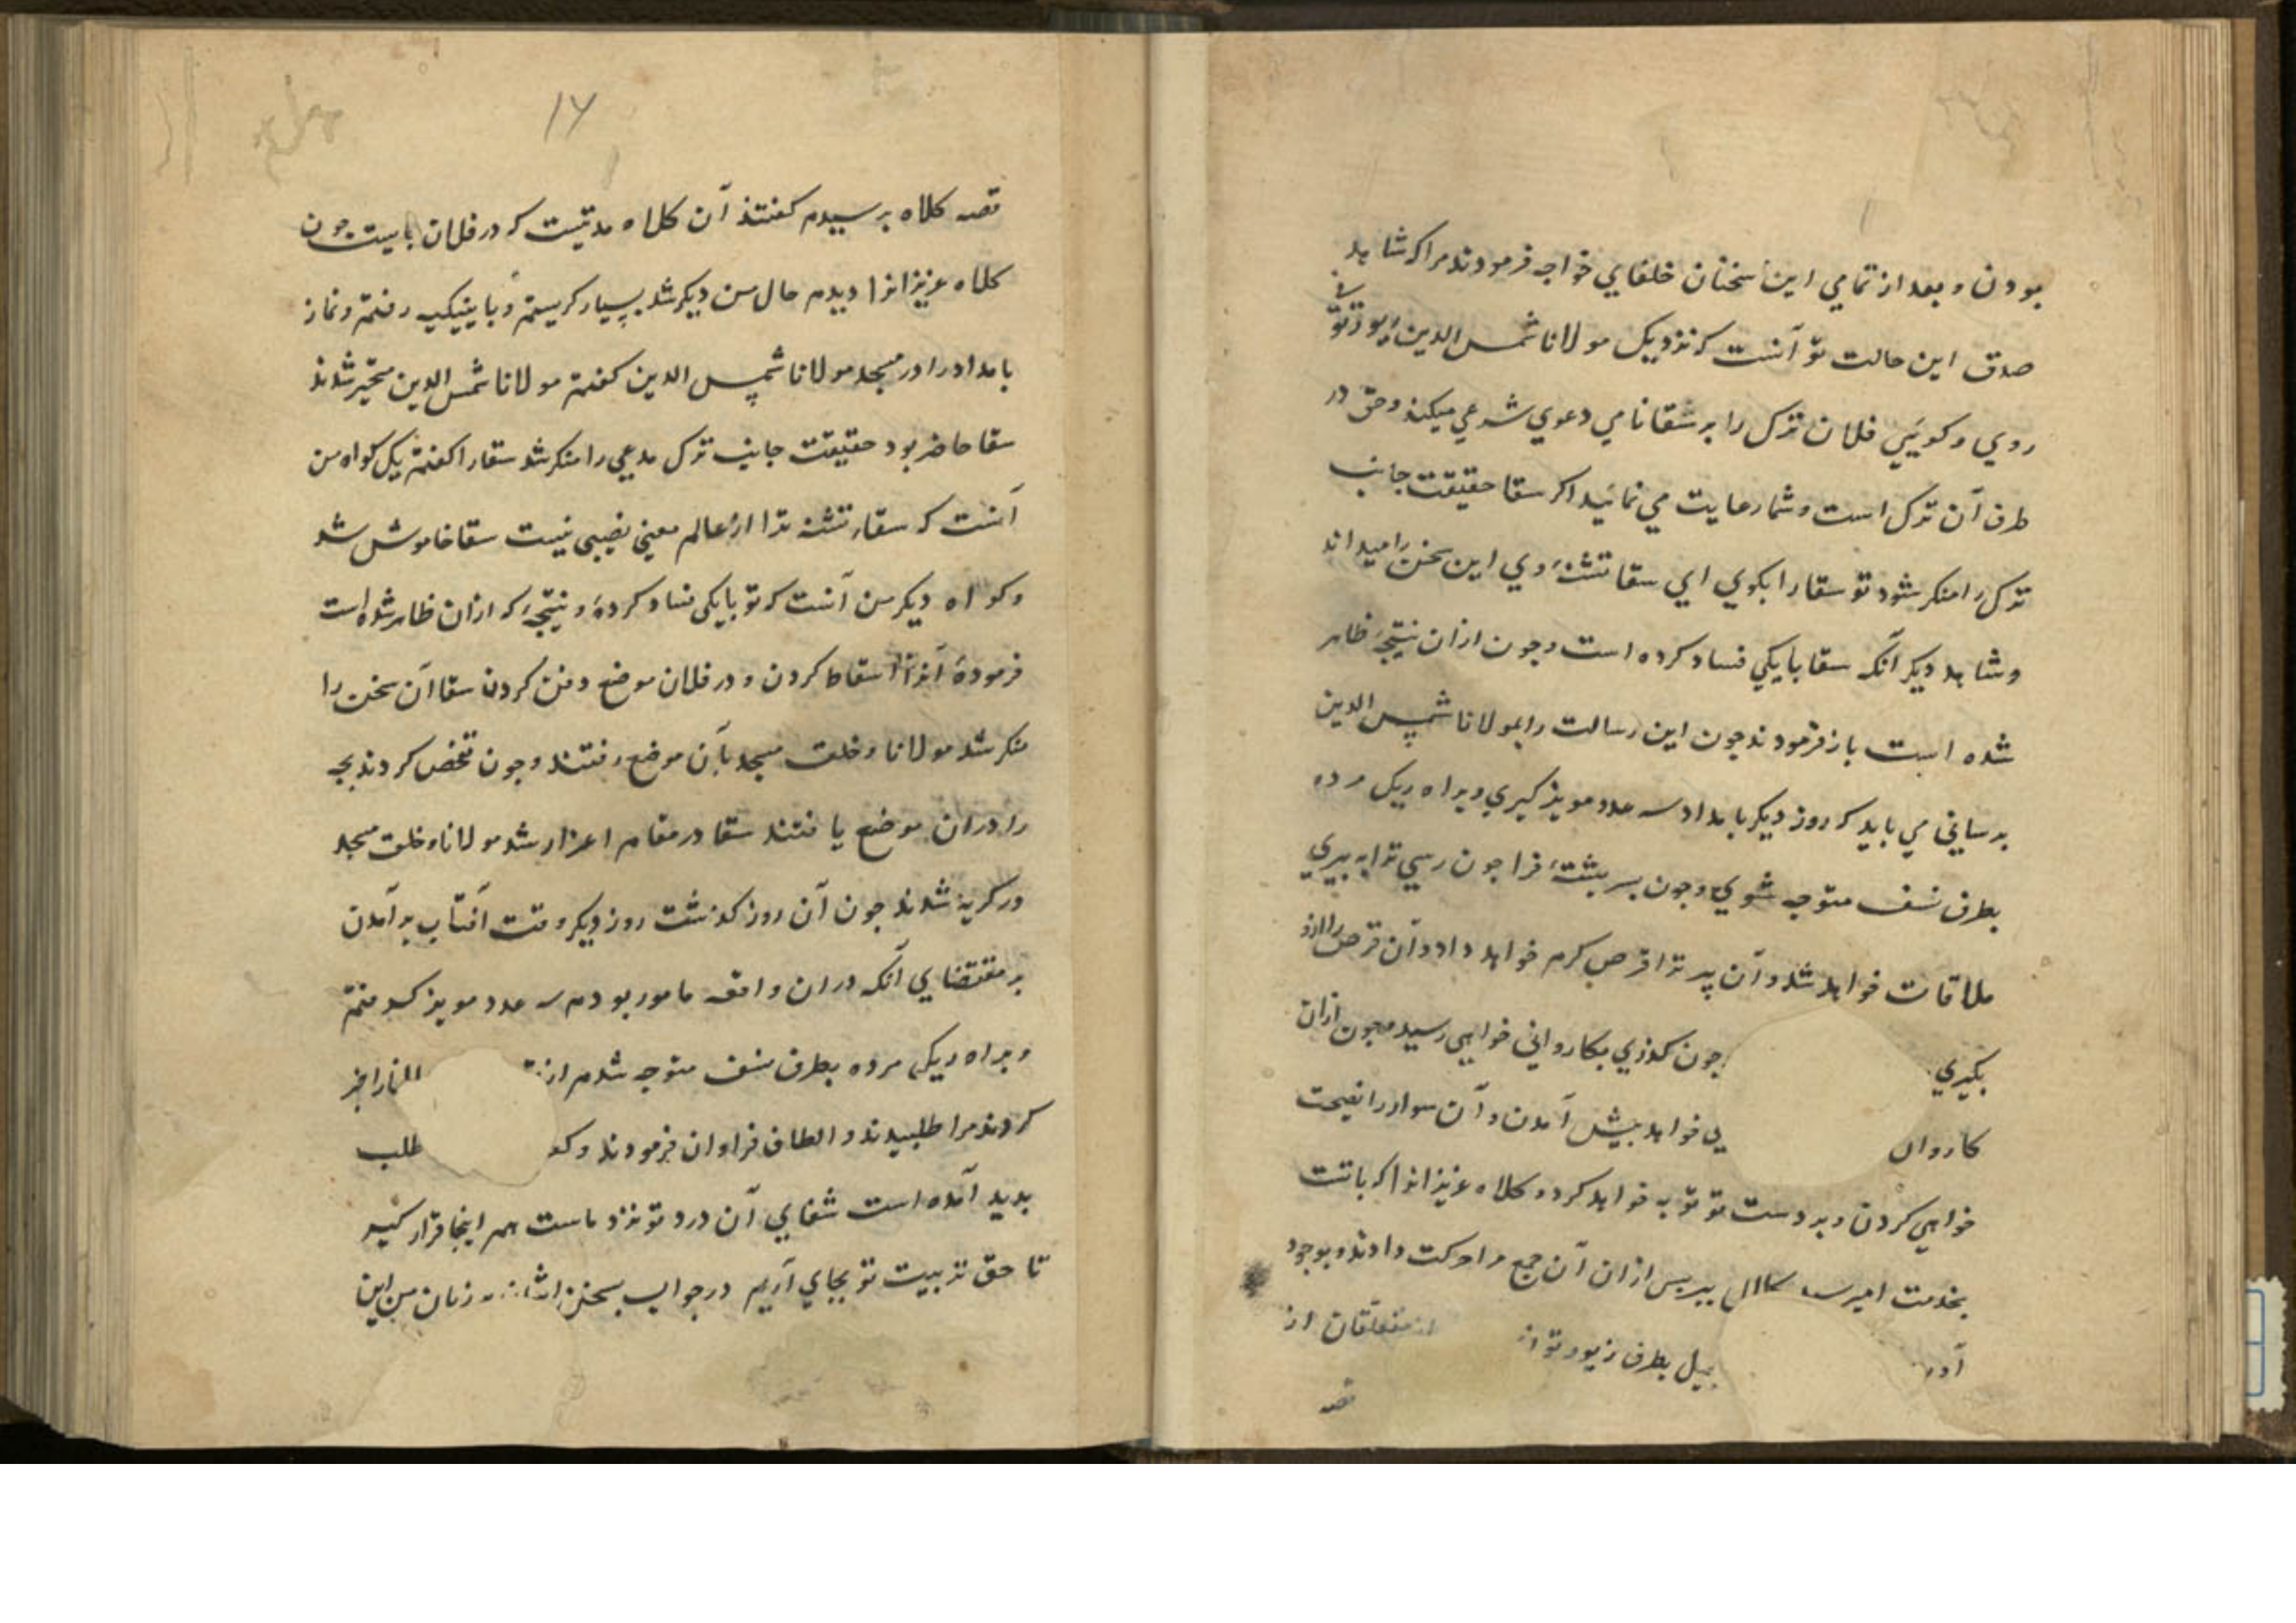 بودن و بعد از تمامي اين سخنان خلفاي خواجه فرمودند مرا كه شاهد
صدق اين حالت تو آنست كه نزديك مولانا شمس الدين
روي و كويئي فلان ترك را بر سقا نامي دعوي شرعي ميكند و حق در
طرف آن ترك است و شما رعايت مي نمائيد اكر سقا حقيقت جانب
ترك را منكر شود تو سقا را بكوي اي سقا تشنهٔ وي اين سخن را ميداند
و شاهد ديكر آنكه سقا با يكي فساد كرده است و جون ازان نتيجهٔ ظاهر
شده است باز فرمودند جون اين رسالت را بمولانا شمس الدين
برساني مي بايد كه روز ديكر بامداد سه عدد مويز كيري و براه ريك مرده
بطرف نسف متوجه شوي و جون بسر پشتهٔ فراجون رسي ترا به پيري
ملاقات خواهد شد و آن پير ترا قرص كرم خواهد داد و آن قرص را ازو
بكيري جون كذري بكارواني خواهي رسيد و جون ازان
كاروان خواهد پيش آمدن و آن سوار را نصيحت
خواهي كردن و بر دست تو توبه خواهد كرد و كلاه عزيزانرا كه باتست
بخدمت امير سيد كلال ببر پس ازان آن جمع مرا حركت دادند و بوجود
بطرف زيورتون متعلقان از
قصه
١٧
قصه كلاه پرسيدم كفتند آن كلاه مدتيست كه در فلان جايست جون
كلاه عزيزانرا ديدم حال من ديكر شد بسيار كريستم و باينبكيه رفتم و نماز
بامداد را در مسجد مولانا شمس الدين كفتم مولانا شمس الدين متحير شدند
سقا حاضر بود حقيقت جانب ترك مدعي را منكر شد سقا را كفتم يك كواه من
آنست كه سقاء تشنه ترا از عالم معني نصيبي نيست سقا خاموش شد
و كواه ديكر من آنست كه تو با يكي فساد كردهٔ و نتيجهٔ كه ازان ظاهر شده است
فرمودهٔ آنرا اسقاط كردن و در فلان موضع دفن كردن سقا آن سخن را
منكر شد مولانا و خلق مسجد بآن موضع رفتند و جون تفحص كردند بجه
را دران موضع يافتند سقا در مقام اعذار شد مولانا و خلق مسجد
در كريه شدند جون آن روز كذشت روز ديكر وقت آفتاب بر آمدن
بر مقتضاي آنكه دران واقعه مامور بودم سه عدد مويز كرفتم
و براه ريك مرده بطرف نسف متوجه شدم را خبر
كردند مرا طلبيدند و الطاف فراوان فرمودند و طلب
پديد آمده است شفاي آن درد تو نزد ماست هم اينجا قرار كير
تا حق تربيت تو بجاي آريم در جواب سخن ايشان زبان من اين